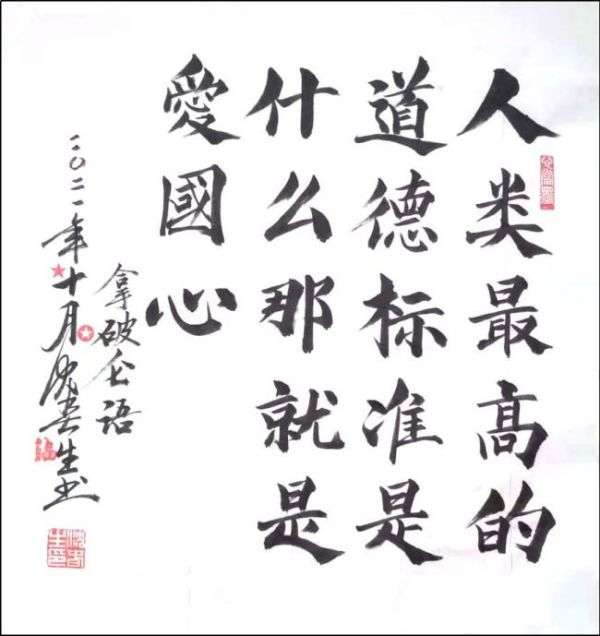 人类最高的
道德标准是
什么那就是
愛國心
拿破仑语
二〇二一年十月沈生书